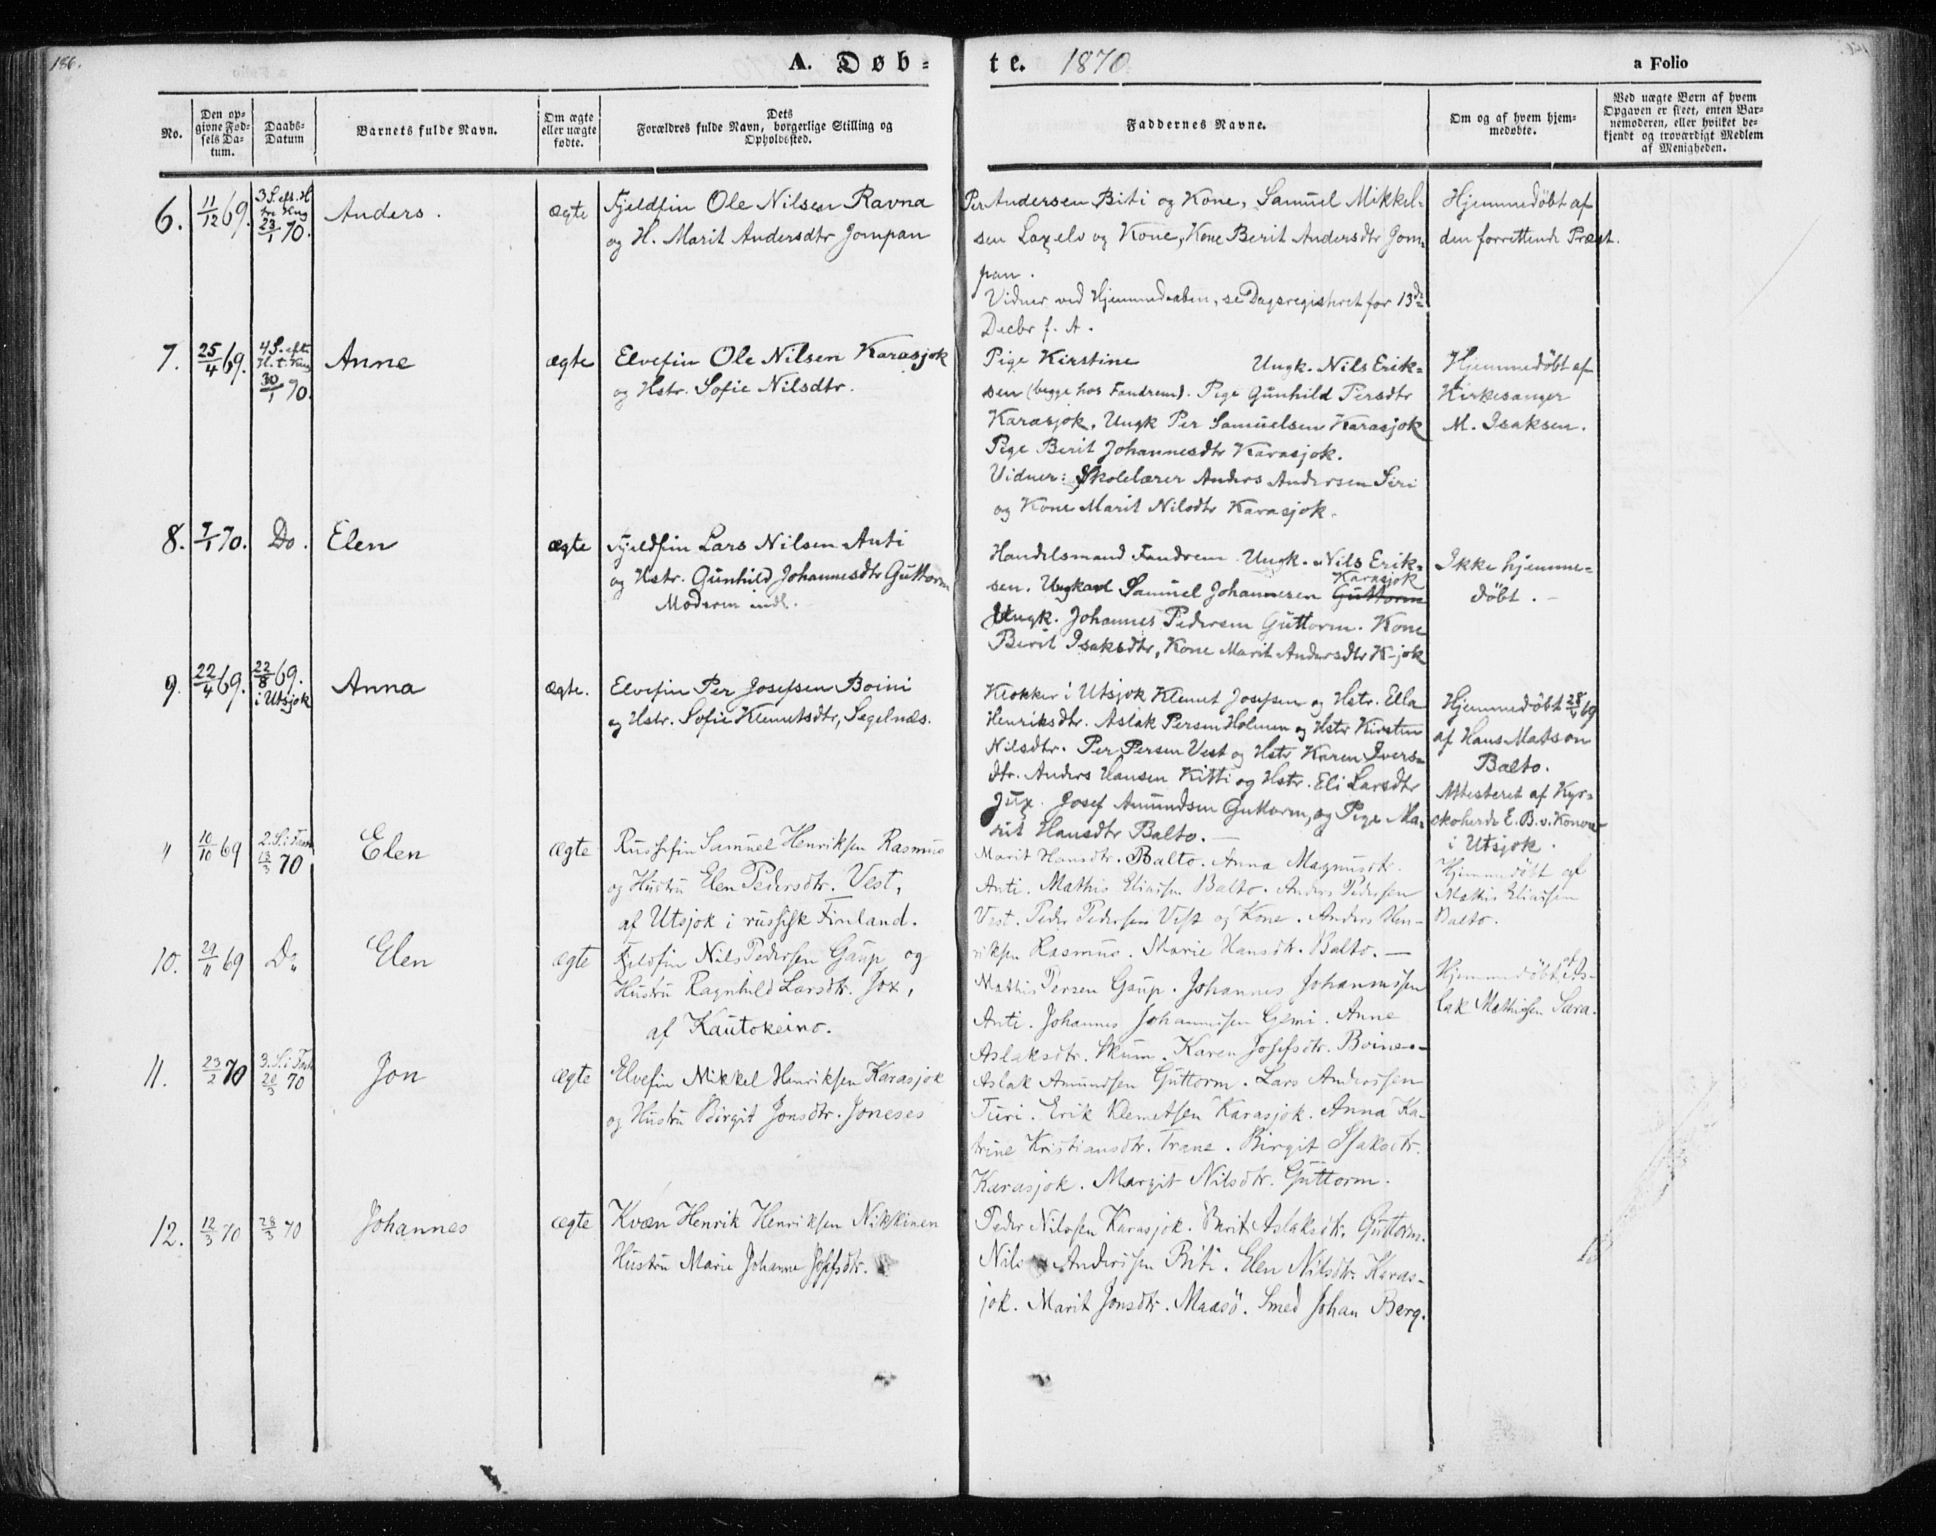 186.
A. Døb-
te. 1870.
a Folio
No.
Den op-
givne Fød-
sels Da-
tum.
Daabs-
Datum
Barnets fulde Navn.
Om ægte
eller uægte
fødte.
Dets
Forældres fulde Navn, borgerlige Stilling og
Opholdssted.
Faddernes Navne.
Om og af hvem hjem-
medøbte.
Ved uægte Børn af hvem
Opgaven er skeet, enten Bar-
nemoderen, eller hvilket be-
kjendt og troværdigt Medlem
af Menigheden.
6.
11/12 69.
3 S. eft. H
tre Kng
23/1 70.
Anders.
ægte
Fjeldfin Ole Nilsen Ravna
og H. Marit Andersdtr Jompan
Per Andersen Biti og Kone, Samuel Mikkel-
sen Laxelv og Kone, Kone Berit Andersdtr Jom-
pan.
Vidner ved Hjemmedaaben, se Dagsregistret for 13de
Decbr f. A.
Hjemmedøbt af
den forrettende Præst.
7.
25/4 69.
4 S. eft.
H. t. Kng
30/1 70.
Anne
ægte
Elvefin Ole Nilsen Karasjok
og Hstr. Sofie Nilsdtr.
Pige Kirstine Ungk. Nils Erik-
sen (begge hos Fandrem). Pige Gunhild Persdtr
Karasjok, Ungk Per Samuelsen Karasjok
Pige Berit Johannesdtr Karasjok.
Vidner: Skolelærer Anders Andersen Siri
og Kone Marit Nilsdtr Karasjok.
Hjemmedøbt af
Kirkesanger
M. Isaksen.
8.
7/1 70.
Do.
Elen
ægte
Fjeldfin Lars Nilsen Anti
og Hstr. Gunhild Johannesdtr Guttorm
Moderen indl.
Handelsmand Fandrem. Ungk. Nils Erik-
Karasjok
sen. Ungkarl Samuel Johannesen Guttorm
Ungk. Johannes Pedersen Guttorm. Kone
Berit Isaksdtr, Kone Marit Andersdtr K-jok
Ikke hjemme-
døbt.
9.
22/4 69.
22/8 69.
i Utsjok
Anna
ægte.
Elvefin Per Josefsen Boini
og Hstr. Sofie Klemetsdtr, Segelnæs.
Klokker i Utsjok Klemet Josefsen og Hstr. Ella
Henriksdtr. Aslak Persen Holmen og Hstr Kirsten
Nilsdtr. Per Persen Vest og Hstr Karen Ivers-
dtr. Anders Hansen Kitti og Hstr. Eli Larsdtr
Jux. Josef Amundsen Guttorm, og Pige Ma-
rit Hansdtr Balto.
Hjemmedøbt 28/4 69
af Hans Matson
Balto.
Attesteret af Kyr-
koherde E. B. v. Konow
i Utsjok.
"
10/10 69
2. S. i Fast.
13/3 70
Elen
ægte
Russefin Samuel Henriksen Rasmus
og Hustru Elen Pedersdtr. Vest,
af Utsjok i russisk Finland.
Marit Hansdtr. Balto. Anna Magnusdtr.
Anti. Mathis Eliassen Balto. Anders Pedersen
Vest. Peder Pedersen Vest og Kone. Anders Hen-
riksen Rasmus. Marie Hansdtr. Balto.
Hjemmedøbt af
Mathis Eliassen
Balto.
10.
29/11 69
Do
Elen
ægte
Fjeldfin Nils Pedersen Gaup og
Hustru Ragnhild Larsdtr. Jox,
af Kautokeino.
Mathis Persen Gaup. Johannes Johannissen
Anti. Johannes Johannissen Gemi. Anne
Aslaksdtr. Skum. Karen Josefsdtr. Boine
Hjemmedøbt af As-
lak Mathissen Sara.
11.
23/2 70
3. S. i Fast.
20/3 70
Jon
ægte
Elvefin Nikkel Henriksen Karasjok
og Hustru Birgit Jonsdtr. Joneses
Aslak Amundsen Guttorm. Lars Anderssen
Turi. Erik Klemetsen Karasjok. Anna Ka-
trine Kristiansdtr. Trane. Birgit Isaksdtr.
Karasjok. Margit Nilsdtr. Guttorm.
12.
12/3 70
28/3 70
Johannes
ægte
Kvæn Henrik Henriksen Nikkinen
Hustru Marie Johanne Josefsdtr.
Peder Nilssen Karasjok. Berit Aslaksdtr. Guttorm.
Nils Anderssen Biti. Elen Nilsdtr. Karas-
jok. Marit Jonsdtr. Maasö. Smed Johan Berg.